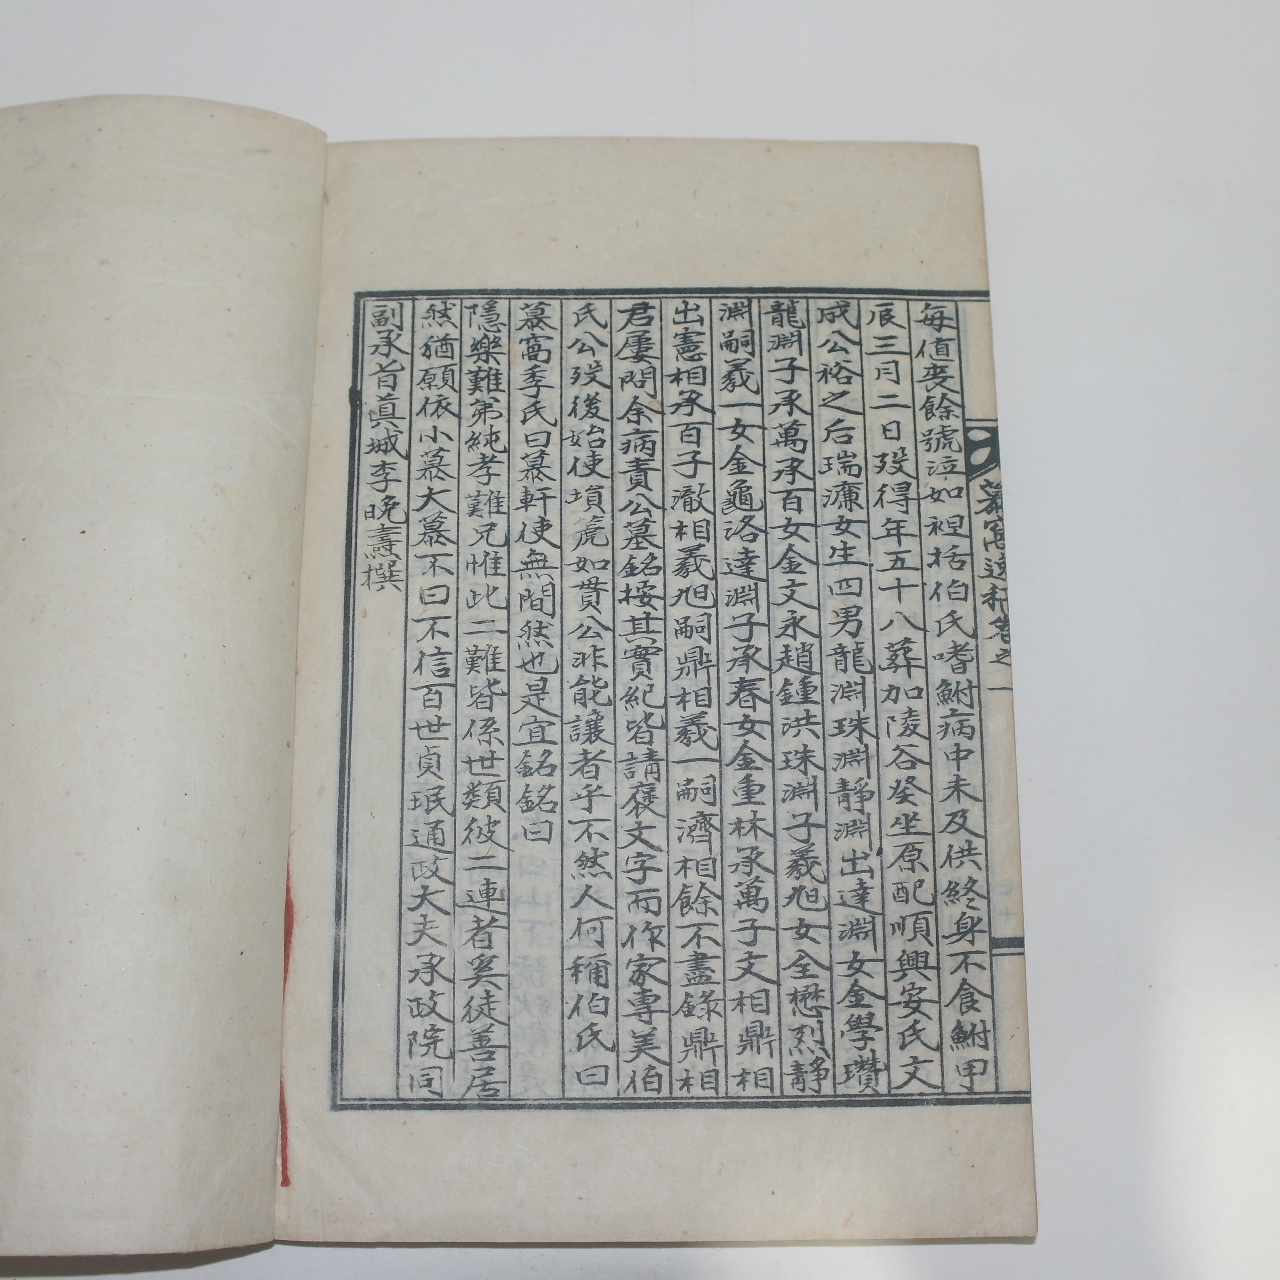 每值喪餘號泣如袒括伯氏嗜鮒病中未及供終身不食鮒甲
辰三月二日歿得年五十八葬加陵谷癸坐原配順興安氏文
成公裕之后瑞濂女生四男龍淵珠淵靜淵出達淵女金學瓚
龍淵子承萬承百女金文永趙鍾洪珠淵子羲旭女全懋烈靜
淵嗣羲一女金龜洛達淵子承春女金重林承萬子文相鼎相
出憲相承百子澈相羲旭嗣鼎相羲一嗣濟相餘不盡錄鼎相
君屢問余病責公墓銘按其實紀皆請褒文字而作家專美伯
氏公歿後始使塤篪如貫公非能讓者乎不然人何稱伯氏曰
慕窩季氏曰慕軒使無間然也是宜銘銘曰
隱樂難弟純孝難兄惟此二難皆係世類彼二連者奚徒善居
然猶願依小慕大慕不曰不信百世貞珉通政大夫承政院同
副承旨眞城李晩燾撰
慕窩逸稿卷之一